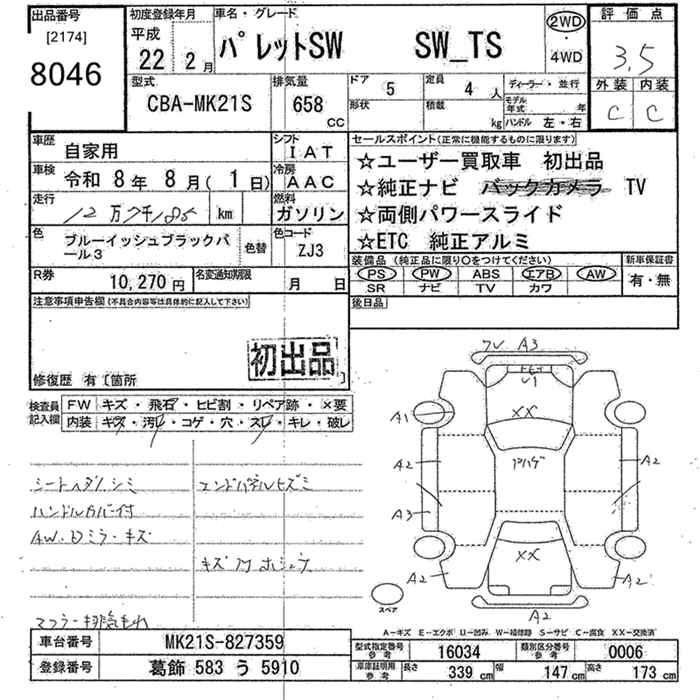 出品番号
[2174]
8046
初度登録年月
平成
22年 2月
車名・グレード
パレットSW SW_TS
2WD
・
4WD
評価点
3.5
外装 内装
C C
型式
CBA-MK21S
排気量
658
CC
ドア 5
形状
定員 4人
積載 kg
ディーラー・並行
モデル年式 年
ハンドル 左・右
車歴
自家用
シフト
IAT
車検
令和 8年 8月(1日)
冷房
AAC
走行
km
燃料
ガソリン
色
ブルーイッシュブラックパール3
色替
色コード
ZJ3
R券
10,270円
名変通知期限
月 日
セールスポイント(正常に機能するものに限ります)
☆ユーザー買取車 初出品
☆純正ナビ バックカメラ TV
☆両側パワースライド
☆ETC 純正アルミ
装備品(純正品に限り○をつけてください)
PS PW ABS エアB AW
SR ナビ TV カワ
新車保証書
有・無
後日品
注意事項申告欄(不具合内容等は具体的に記入して下さい)
初出品
修復歴 有〔箇所 〕
検査員記入欄
FW キズ・飛石・ヒビ割・リペア跡・×要
内装 キズ・汚レ・コゲ・穴・スレ・キレ・破レ
シートヘタリ、シミ
ハンドルカバー付
AW・Dミラーキズ
エンドパネルヒズミ
マフラー排気もれ
A3
A1
XX
A2
アハゲ
A2
A3
XX
A2
A2
A2
スペア
A-キズ E-エクボ U-凹み W-補修跡 S-サビ C-腐食 XX-交換済
車台番号
MK21S-827359
登録番号
葛飾 583 う 5910
型式指定番号
参考
16034
類別区分番号
参考
0006
車庫証明用
参考
長さ 339 cm
幅 147 cm
高さ 173 cm